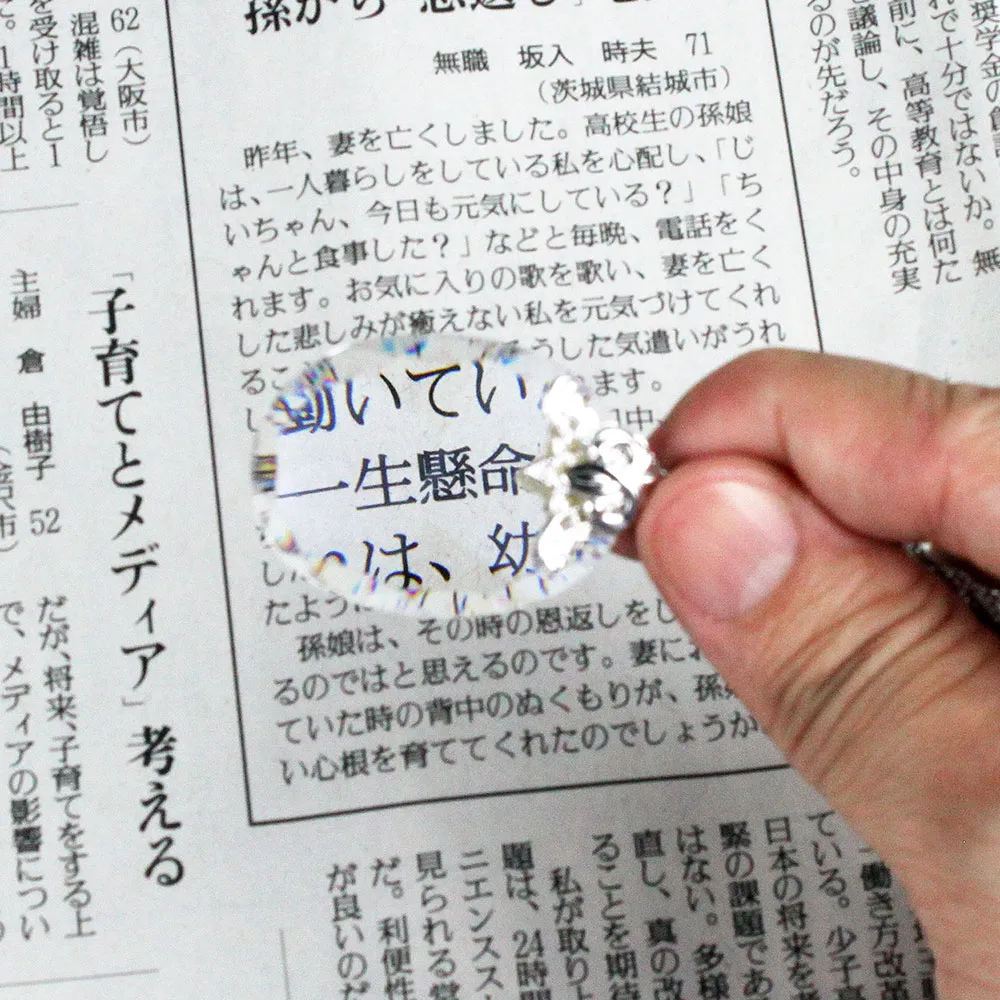 無職 坂入 時夫 71
(茨城県結城市)
昨年、妻を亡くしました。高校生の孫娘
は、一人暮らしをしている私を心配し、「じ
いちゃん、今日も元気にしている？」「ち
ゃんと食事した？」などと毎晩、電話をく
れます。お気に入りの歌を歌い、妻を亡く
した悲しみが癒えない私を元気づけてくれ
るこ うした気遣いがうれ
ます。
動いてい
一生懸命
は、幼
した
たように
孫娘は、その時の恩返しをし
るのではと思えるのです。妻にお
ていた時の背中のぬくもりが、孫
い心根を育ててくれたのでしょうか
奨学金の
れで十分ではないか。無
前に、高等教育とは何た
と議論し、その中身の充実
るのが先だろう。
62(大阪市)
混雑は覚悟し
を受け取ると1
1時間以上
「子育てとメディア」考える
主婦 倉 由樹子 52
(金沢市)
だが、将来、子育てをする上
で、メディアの影響につい
働き方改革
ている。少子高
日本の将来を
緊の課題であ
はない。多様
直し、真の改
ることを期待
私が取り上
題は、24時間
ニエンススト
見られる営
だ。利便性
が良いのだ